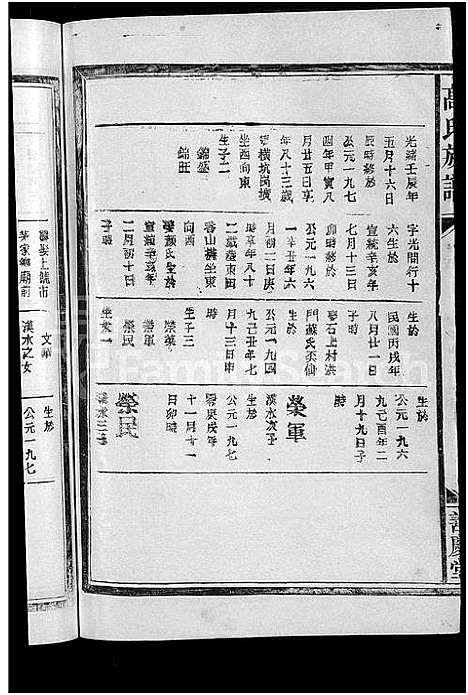 高氏族譜
善慶堂
光緒壬辰年
五月十六日
辰時終於
公元一九七
四年甲寅八
月廿五日享
年八十三歲
葬橫坑崗墳
坐酉向東
生子二
錦盛
錦旺
字光開行十
六生於
宣統辛亥年
七月十三日
公元一九六
一辛丑年六
月初二日庚
時享年八十
二歲葬東田
香山樓坐東
向西
娶顏氏生於
宣統辛亥年
二月初十日
子時
生於
民國丙戌年
八月廿一日
子時
娶石上村洪
門蘇氏
生於
公元一九四
九己丑年七
月十三日申
時
生子三
榮華
榮軍
榮民
生女一
生於
公元一九六
九己酉年二
月十九日子
時
榮軍
漢水次子
生於
公元一九七
零庚戌年
十一月廿一
日卯時
榮民
漢水三子
文華
漢水之女
生於
公元一九七